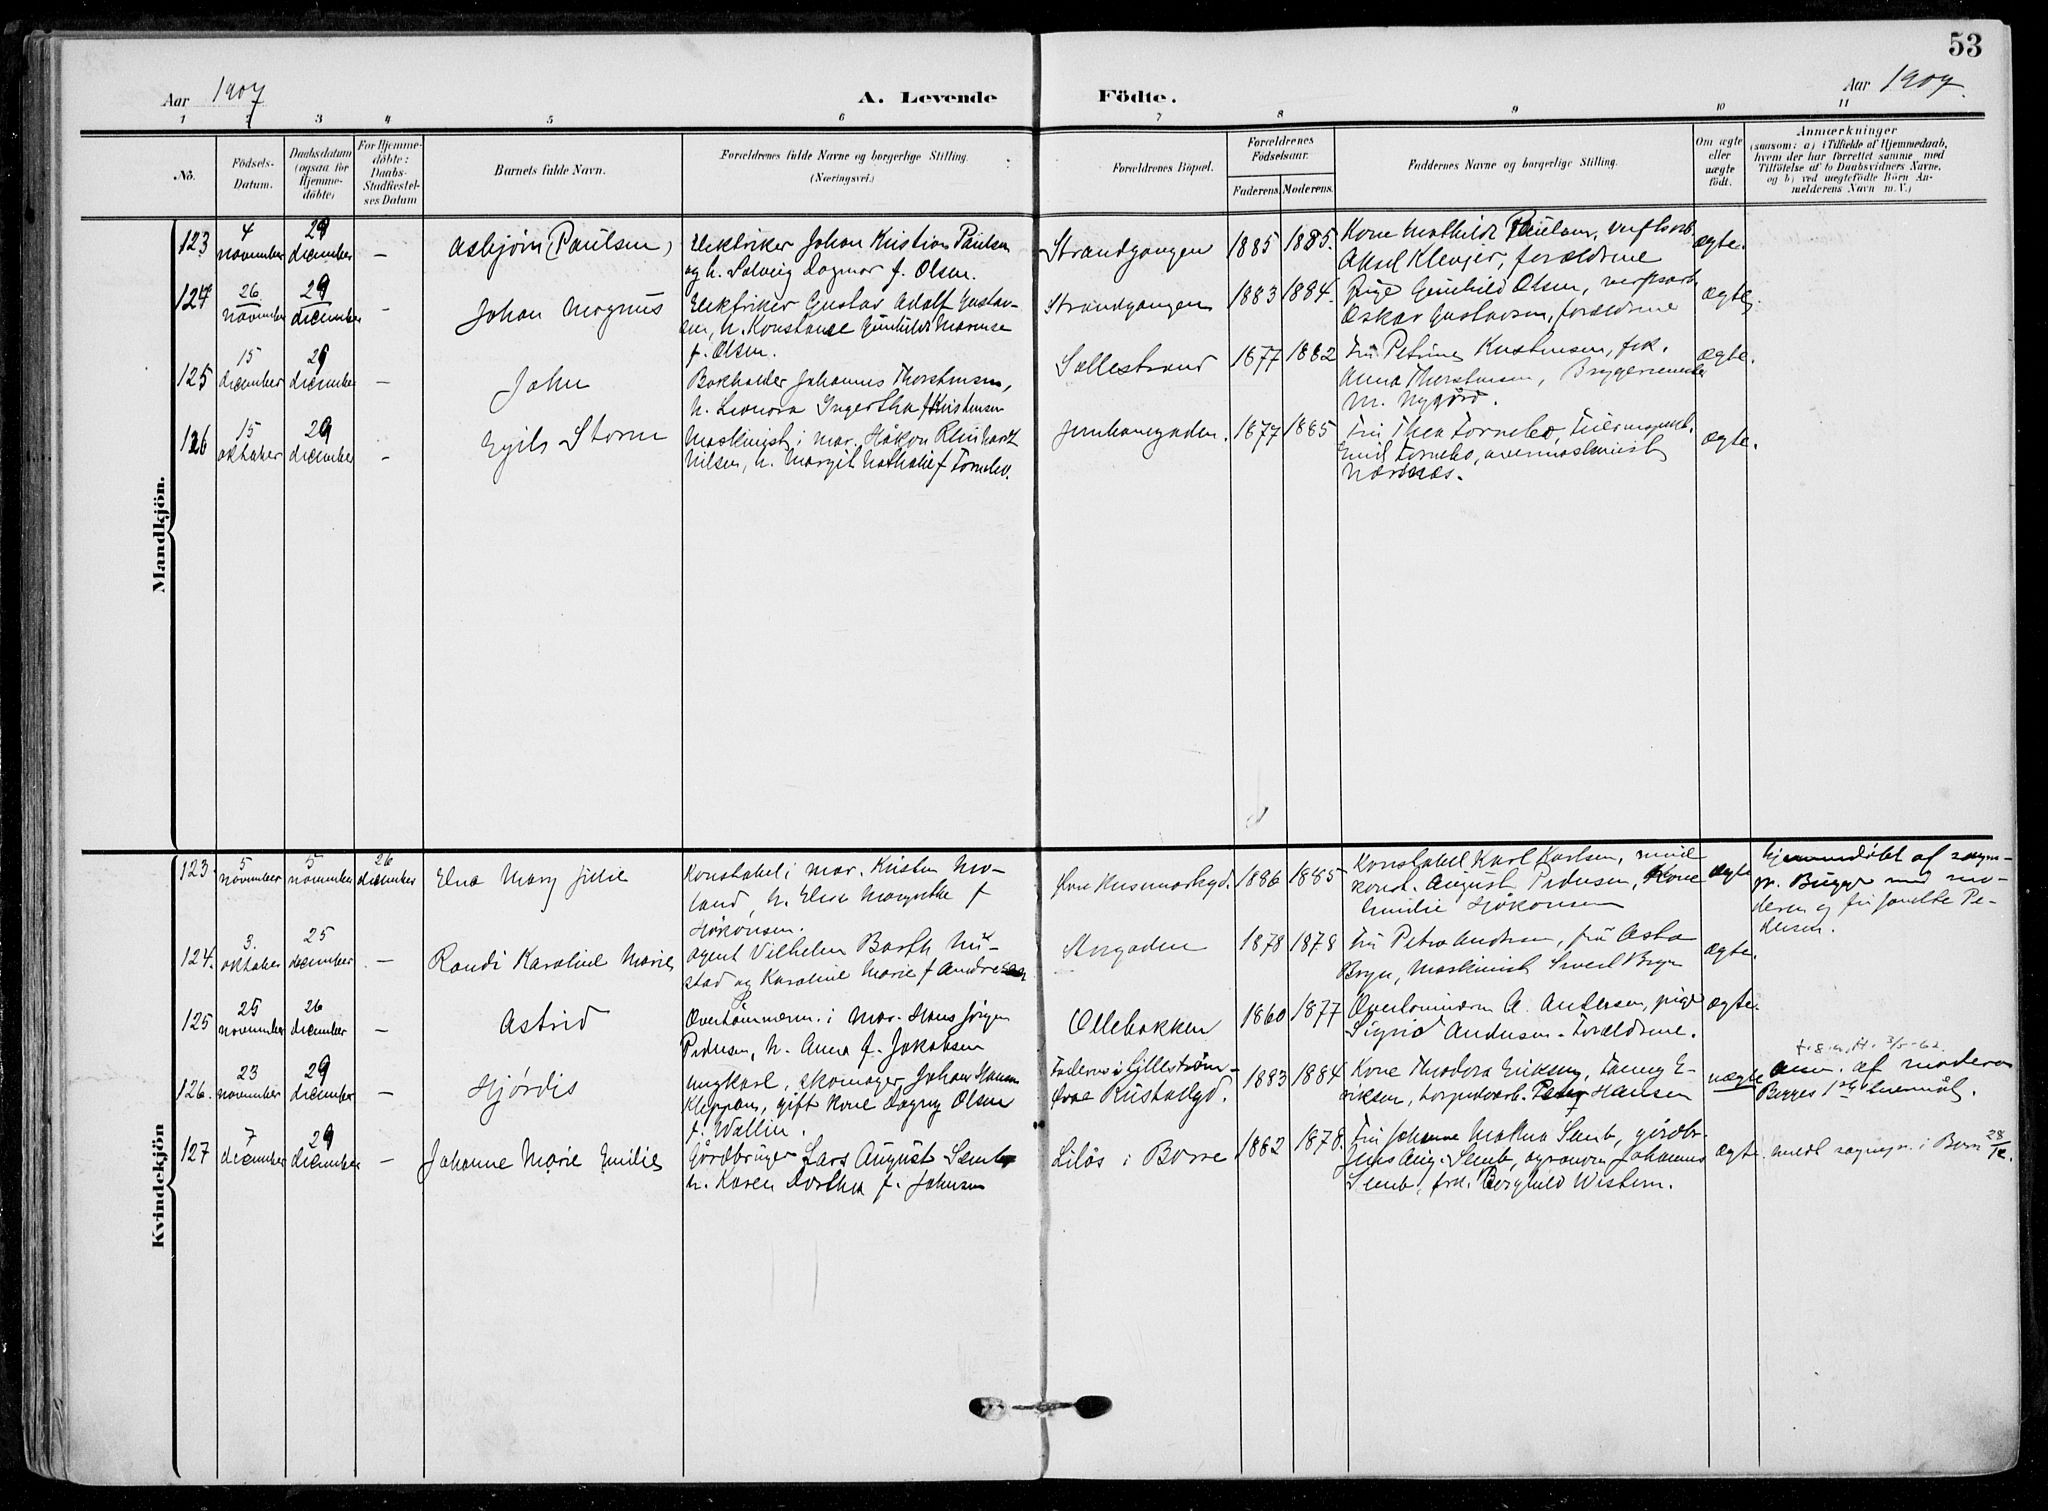 53
Aar 1907
A. Levende Födte.
Aar 1907.
1 2 3 4 5 6 7 8 9 10 11
No.
Födsels-
Datum.
Daabsdatum
(ogsaa for
Hjemme-
döbte)
For Hjemme-
döbte:
Daabs-
Stadfæstel-
ses Datum
Barnets fulde Navn.
Forældrenes fulde Navne og borgerlige Stilling.
(Næringsvei.)
Forældrenes Böpæl.
Forældrenes
Födselsaar.
Faderens. Moderens.
Faddernes Navne og borgerlige Stilling.
Om ægte
eller
uægte
födt.
Anmærkninger
(saasom: a) i Tilfælde af Hjemmedaab,
hvem der har forrettet samme, med
Tilföielse af to Daabsvidners Navne,
og b) ved uægtefödte Börn An-
melderens Navn m. V.)
Mandkjön.
123 4 november 29 december – Asbjørn (Paulsen)
Elektriker Johan Kristian Paulsen
og h. Solveig Dagmar f. Olsen.
Strandgangen 1885 1885.
Kone Mathilde Paulsen, verftsarb.
Aksel Klenger, forældrene
ægte.
124 26 november 29 december – Johan Magnus
Elektriker Gustav Adolf Gustav-
sen, h. Konstanse Gunhilde Marense
f. Olsen.
Strandgangen 1883 1884.
Pige Gunhild Olsen, verftsarb
Oskar Gustavsen, forældrene
ægte
125 15 december 29 december – John
Bokholder Johannes Thorstensen,
h. Leonora Ingertha f Kristensen
Sollestrand 1877 1882
Fru Petrine Kristensen, frk.
Anna Thorstensen, Bryggeriemester
M. Nygård.
ægte.
126 15 oktober 29 december – Egils Storm
Maskinist i mar. Håkon Reinhart
Nilsen, h. Margit Nathalie f Tornebo.
Jernbanegaden. 1877 1885
Fru Thea Tornebo,
Emil Tornebo, overmaskinist
Nærsnes.
ægte.
Kvindekjön
123 5 november 5 november 26 december Elna Mary Jillie
Konstabel i mar. Kristen Mo-
land, h. Elen Margrethe f
Håkonsen.
Øvre Husmorbygd. 1886 1885
Konstabel Karl Karlsen, mind
konst. August Pedersen, Kone
Emilie Håkonsen
ægte
hjemmedøbt af sogn-
pr. Bugge med mo-
deren og fru Janette Pe-
dersen.
124. 3. oktober 25 december – Randi Karoline Marie
agent Vilhelm Barth Nu-
stad og Karoline Marie f Andresen
Storgaden 1878 1878
Fru Petra Andersen, frk Asta
Bryn, Maskinist Sverd Bryn
ægte.
125 25 november 26 december – Astrid
Overtømmerm. i Mar. Hans Jörgen
Pedersen, h. Anna f. Jakobsen
Ollebakken 1860 1877
A. Antersen, pige
Sigrid Andersen. Forældrene.
ægte.
126. 23 november 29 december – Hjørdis
Ungkarl, skomager, Johan
Kleppan, gift kone Dagny Olsen
f. Wallin.
Faderens: Lillestrøm –
Øvre 1883 1884
Kone Theodora Eriksen, Fanny E-
riksen, torpedoarb. Peter Hansen
uægte
3/5-62
anm. af moderen
Begges 1ste leiermål.
127 7 december 29 december – Johanne Marie Emilie
Gårdbruger Lars August Semb
h. Karen Dorthea f. Johnsen
Liløs i Borre 1882 1878.
Fru Johanne Mathea Semb, gårdbr.
Jens Aug. Semb, agronom Johannes
Semb, frk. Borghild Wistern.
ægte.
medl sognepr. i Borre 28/12.